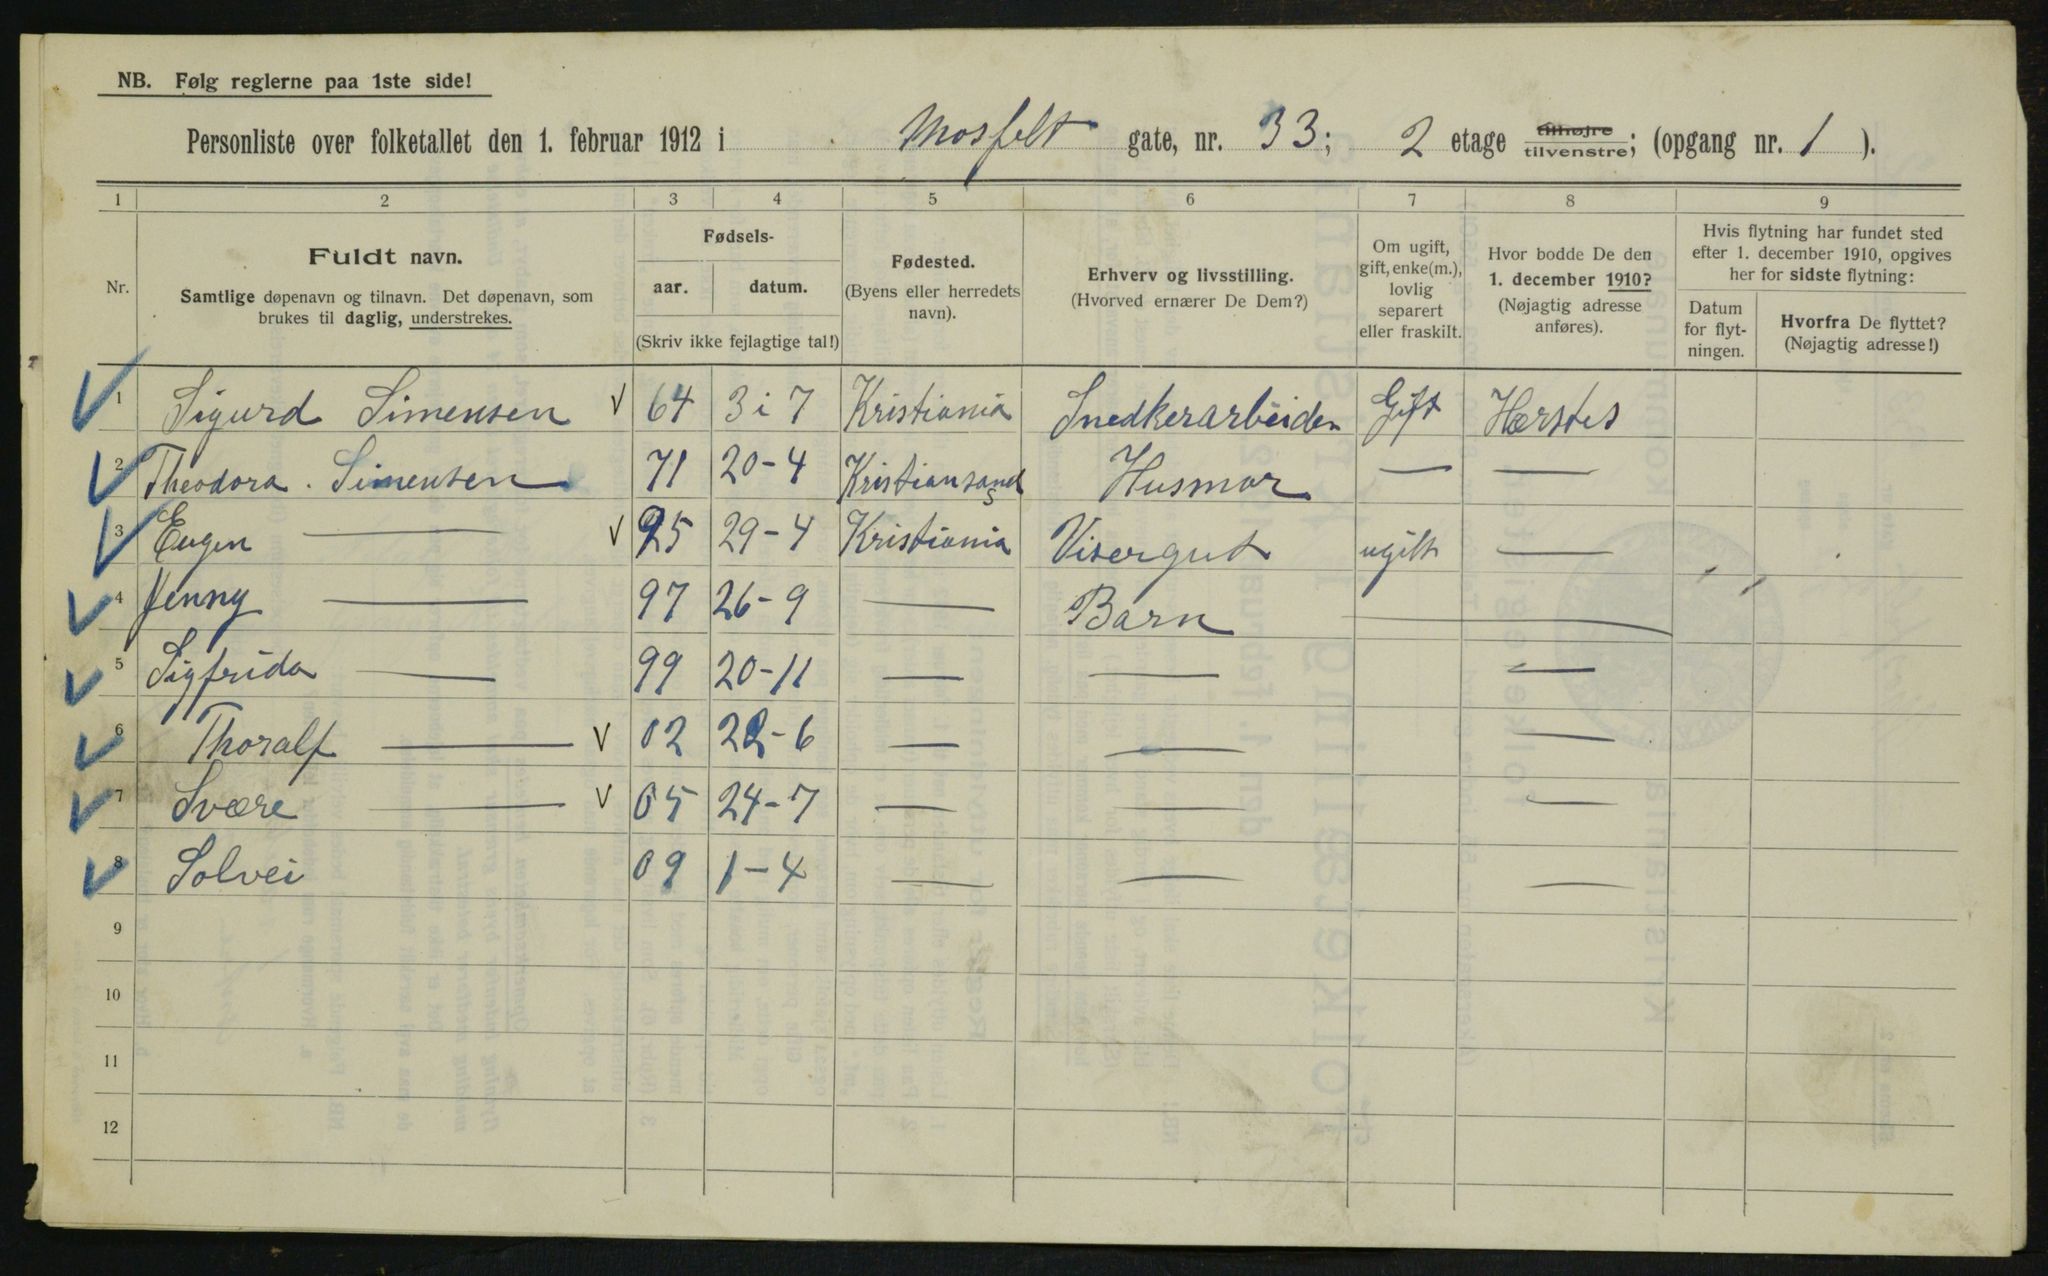 NB. Følg reglerne paa 1ste side!
Personliste over folketallet den 1. februar 1912 i Mosfelt gate, nr. 33; 2 etage tilhøjre tilvenstre; (opgang nr. 1 ).
1 2 3 4 5 6 7 8 9
Nr.
Fuldt navn.
Samtlige døpenavn og tilnavn. Det døpenavn, som
brukes til daglig, understrekes.
Fødsels-
aar. datum.
(Skriv ikke fejlagtige tal!)
Fødested.
(Byens eller herredets
navn).
Erhverv og livsstilling.
(Hvorved ernærer De Dem?)
Om ugift,
gift, enke(m.),
lovlig
separert
eller fraskilt.
Hvor bodde De den
1. december 1910?
(Nøjagtig adresse
anføres).
Hvis flytning har fundet sted
efter 1. december 1910, opgives
her for sidste flytning:
Datum
for flyt-
ningen.
Hvorfra De flyttet?
(Nøjagtig adresse!)
1 Sigurd Simensen V 64 3 i 7 Kristiania Snedkerarbeider Gift Hærstes
2 Theodora . Simensen 71 20-4 Kristiansand S Husmor — —
3 Eugen — V 95 29-4 Kristiania Visergut ugift —
4 Jenny — 97 26-9 — Barn —
5 Sigfrida — 99 20-11 — — —
6 Thoralf — V 02 22-6 — — —
7 Svære — V 05 24-7 — — —
8 Solvei 09 1-4 — — —
9
10
11
12